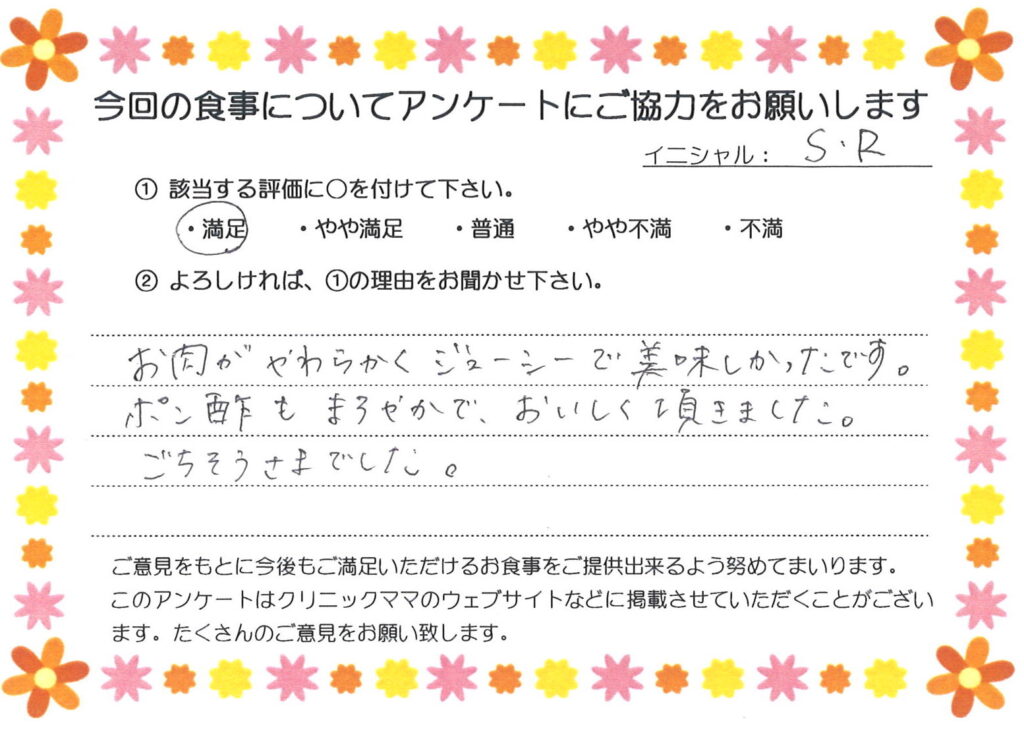 今回の食事についてアンケートにご協力をお願いします
イニシャル： S・R
① 該当する評価に○を付けて下さい。
・満足 ・やや満足 ・普通 ・やや不満 ・不満
② よろしければ、①の理由をお聞かせ下さい。
お肉がやわらかくジューシーで美味しかったです。
ポン酢もまろやかで、おいしく頂きました。
ごちそうさまでした。
ご意見をもとに今後もご満足いただけるお食事をご提供出来るよう努めてまいります。
このアンケートはクリニックママのウェブサイトなどに掲載させていただくことがござい
ます。たくさんのご意見をお願い致します。